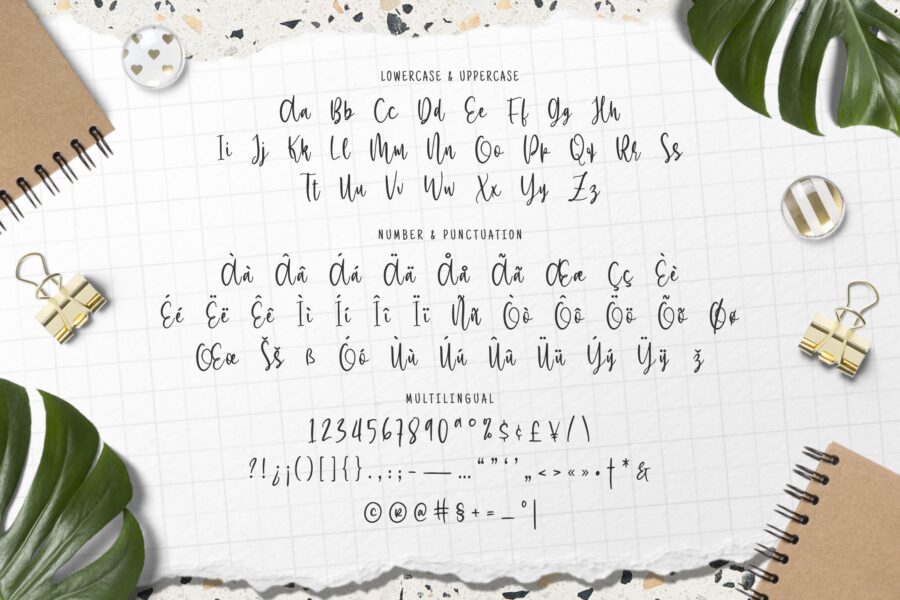 LOWERCASE & UPPERCASE
Aa Bb Cc Dd Ee Ff Gg Hh
Ii Jj Kk Ll Mm Nn Oo Pp Qq Rr Ss
Tt Uu Vv Ww Xx Yy Zz
NUMBER & PUNCTUATION
Àà Ââ Áá Ää Åå Ãã Ææ Çç Èè
Éé Ëë Êê Ìì Íí Îî Ïï Ññ Òò Ôô Öö Õõ Øø
Œœ Šš ß Óô Ùù Úú Ûû Üü Ýý Ÿÿ ž
MULTILINGUAL
1234567890ªº%$¢£¥/\
?!¿¡()[]{}.,:;-—…“”‘’„<>«»•†*&
©®@#§+=_°|